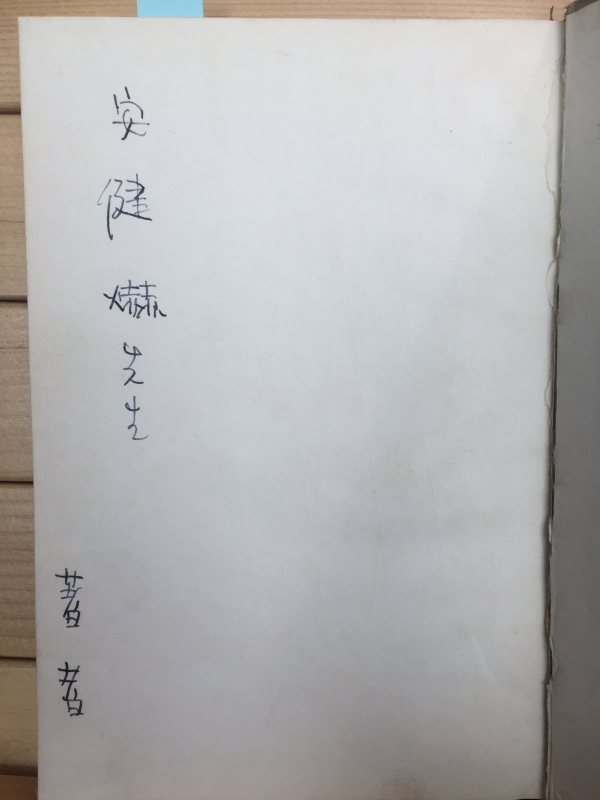 安健爀先生
著者